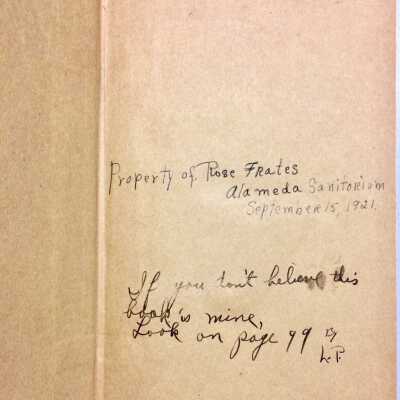 Property of Rose Frates
Alameda Sanitorium
September 15, 1921.
If you don't believe this
book is mine,
Look on page 99 By
L.P.